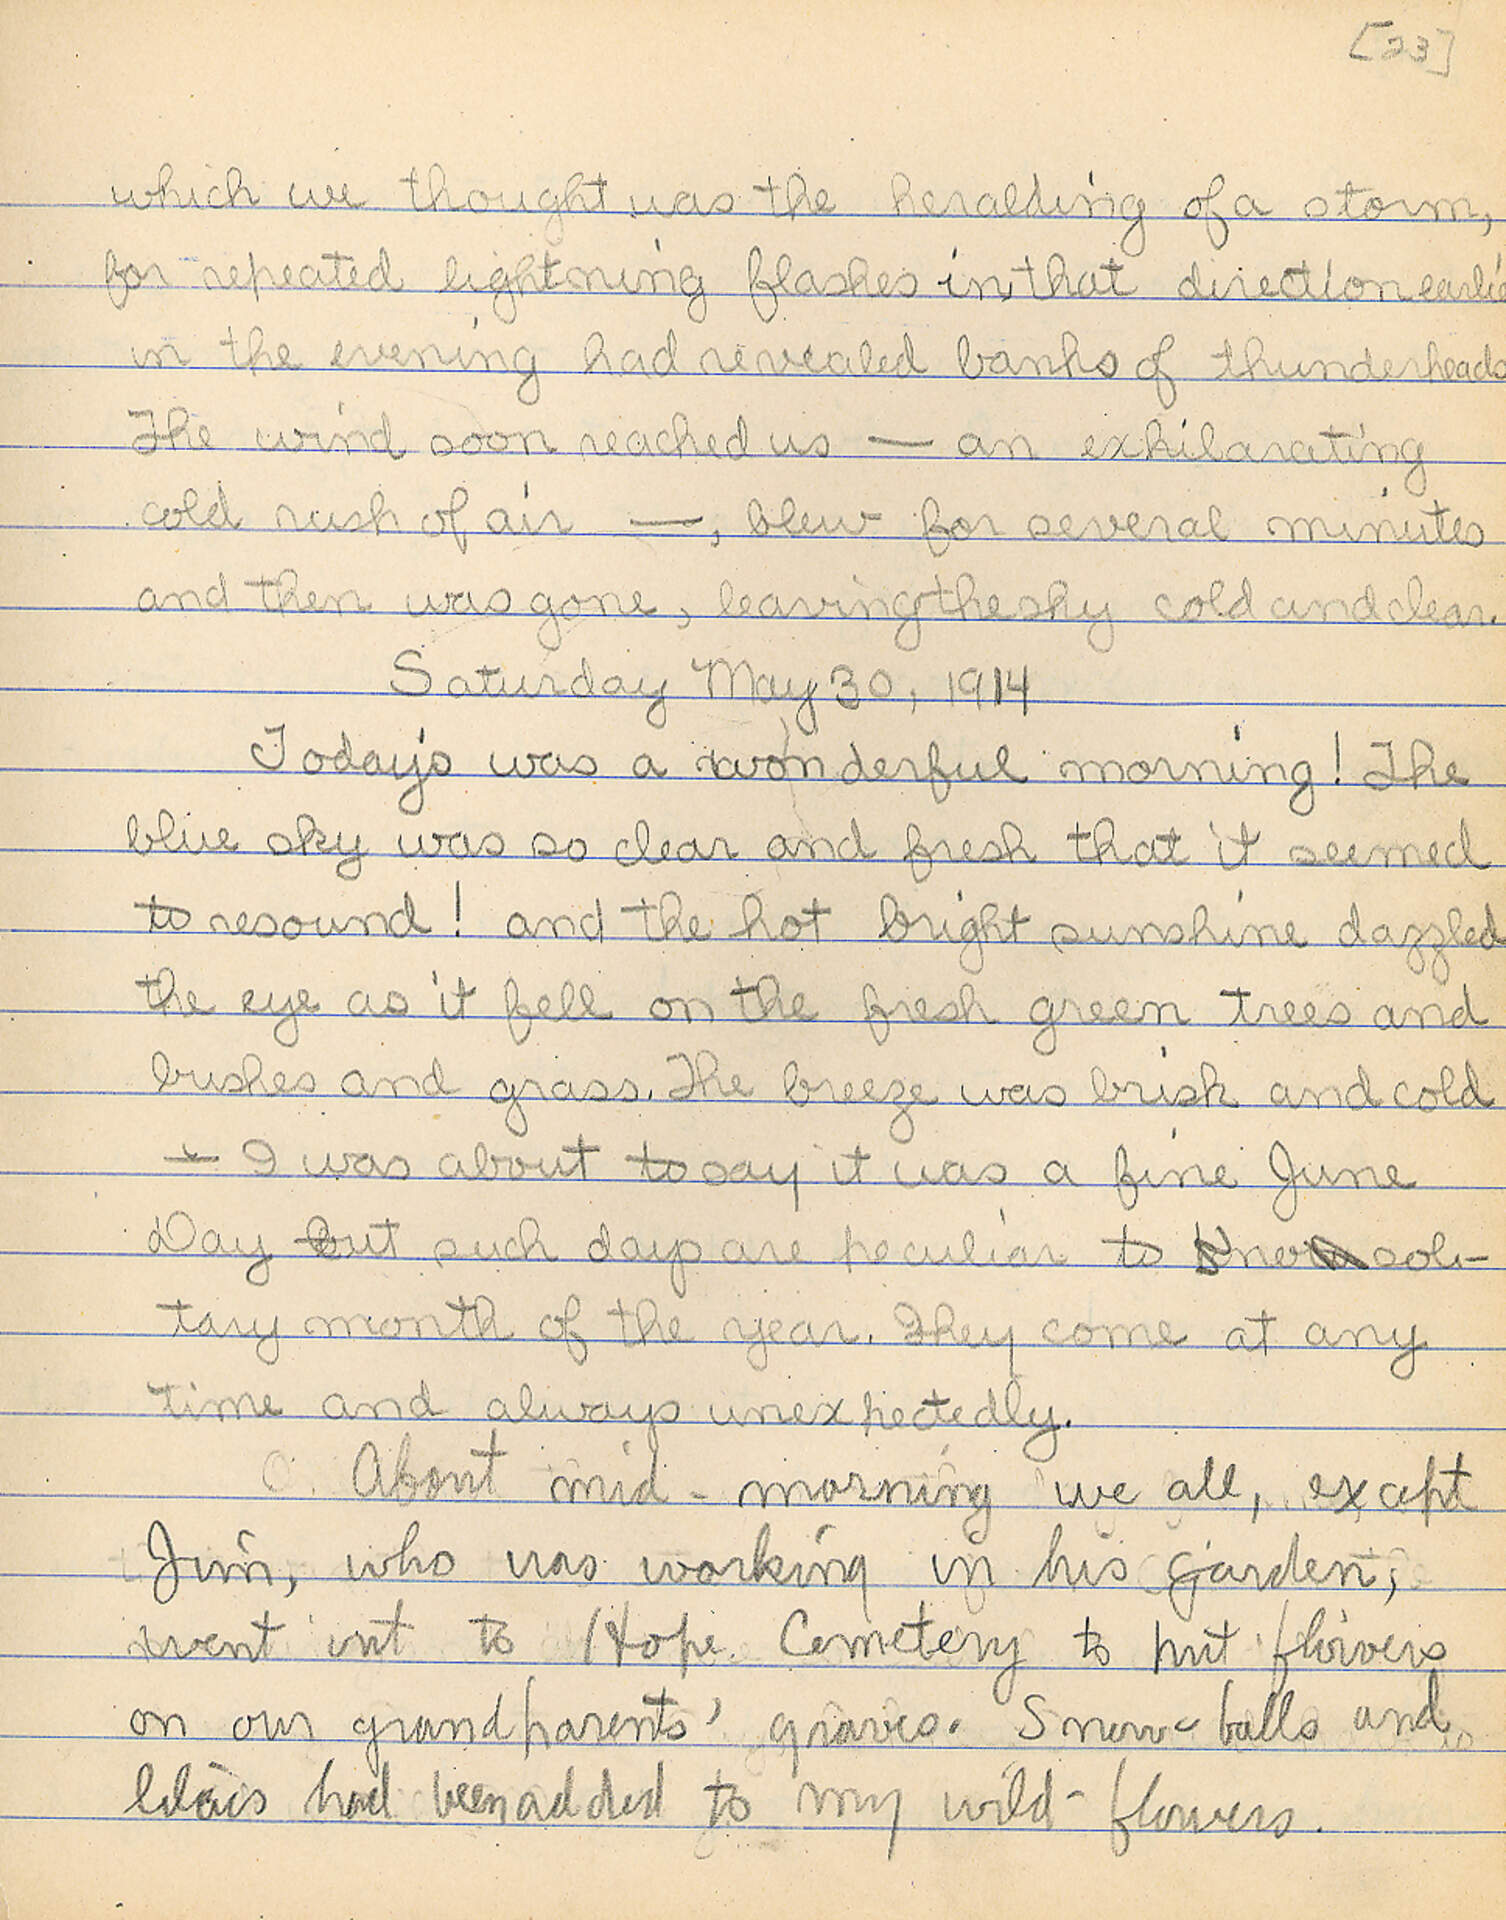 [23]
which we thought was the heralding of a storm,
for repeated lightning flashes in that direction earlie
in the evening had revealed banks of thunderheads
The wind soon reached us — an exhilarating
cold rush of air —, blew for several minutes
and then was gone, leaving the sky cold and clear.
Saturday May 30, 1914
Today's was a wonderful morning! The
blue sky was so clear and fresh that it seemed
to resound! and the hot bright sunshine dazzled
the eye as it fell on the fresh green trees and
bushes and grass. The breeze was brisk and cold
— I was about to say it was a fine June
Day but such days are peculiar to no soli-
tary month of the year. They come at any
time and always unexpectedly.
About mid-morning we all, except
Jim, who was working in his garden,
went out to Hope Cemetery to put flowers
on our grandparents' graves. Snow-balls and
lilacs had been added to my wild-flowers.